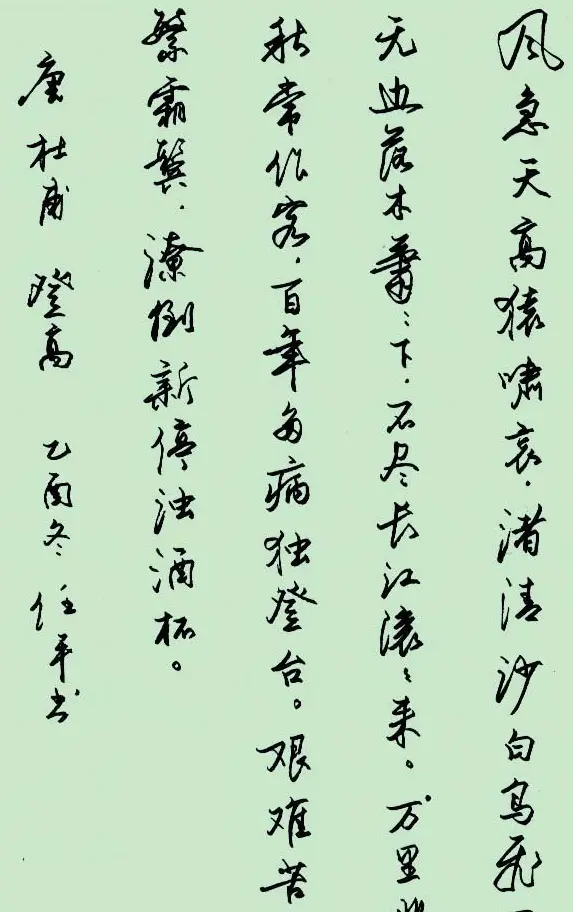 风急天高猿啸哀．渚清沙白鸟飞
无边落木萧〻下．不尽长江滚〻来。万里
秋常作客．百年多病独登台。艰难苦
繁霜鬓．潦倒新停浊酒杯。
唐杜甫 登高 乙酉冬任平书